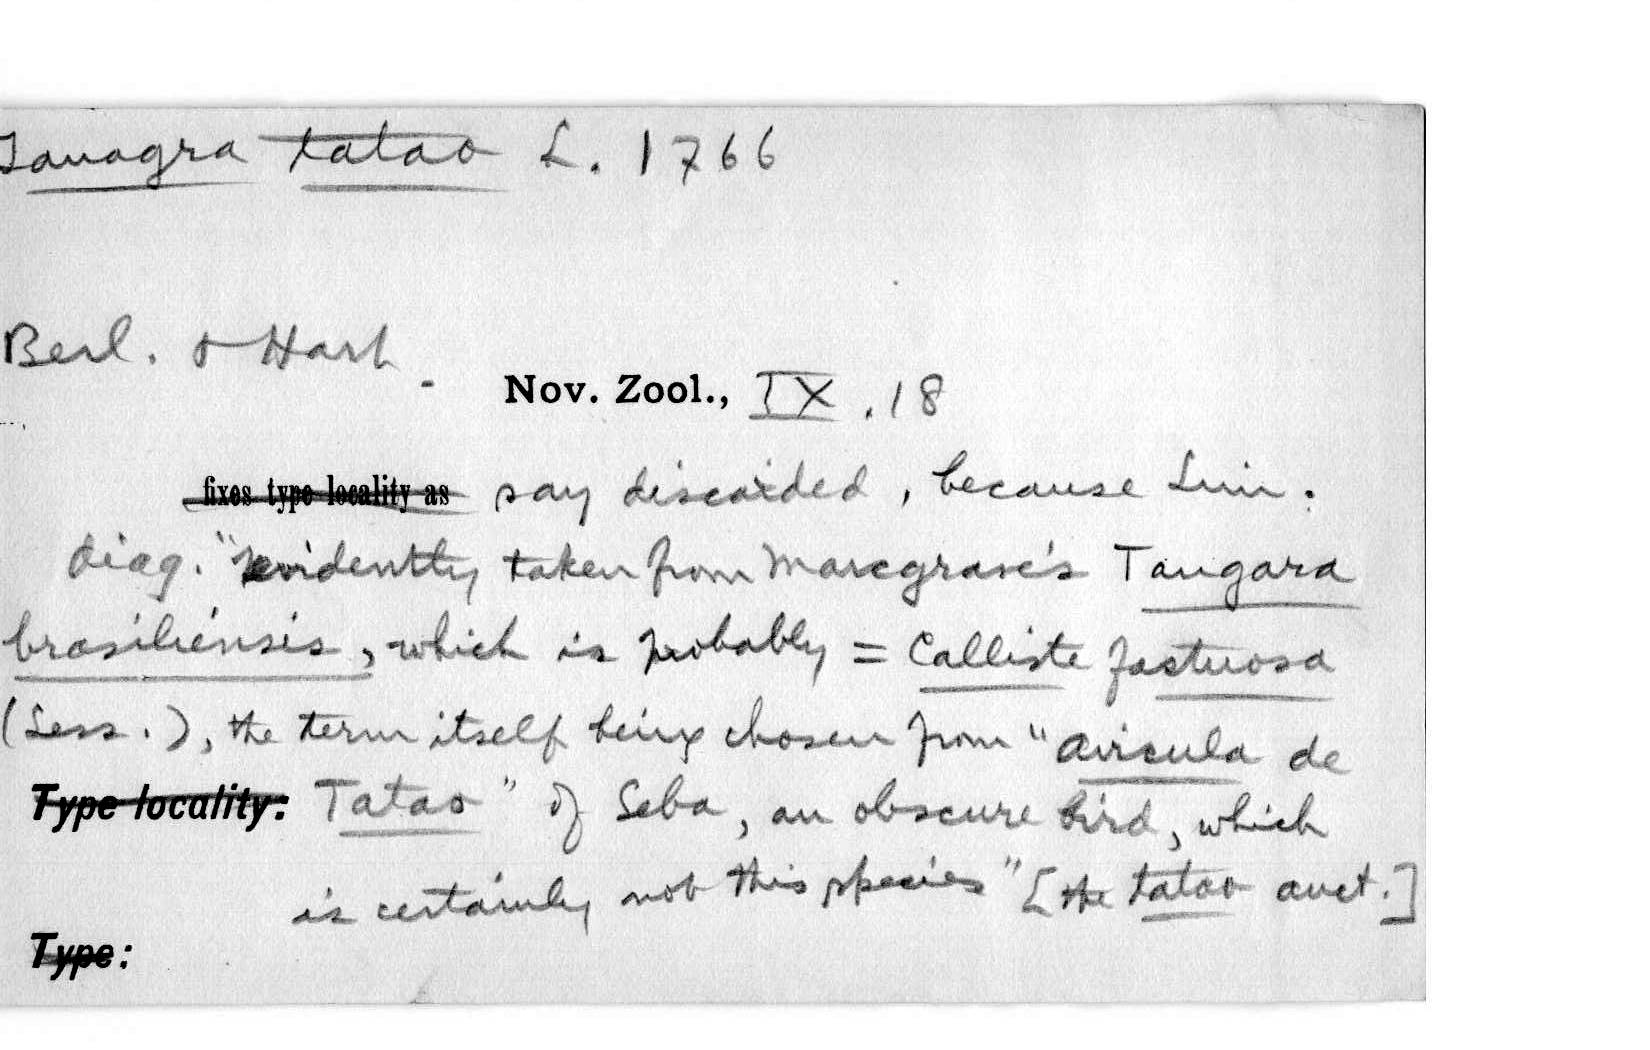 Tanagra tatao L. 1766
Berl. & Hart.
Nov. Zool., IX. 18
fixes type locality as say discarded, because Linn.
diag. "evidently taken from Marcgrave's Tangara
brasiliensis, which is probably = Calliste fastuosa
(Less.), the term itself being chosen from "avicula de
Type locality: Tatao" of Seba, an obscure bird, which
is certainly not this species" [the tatao auct.]
Type: